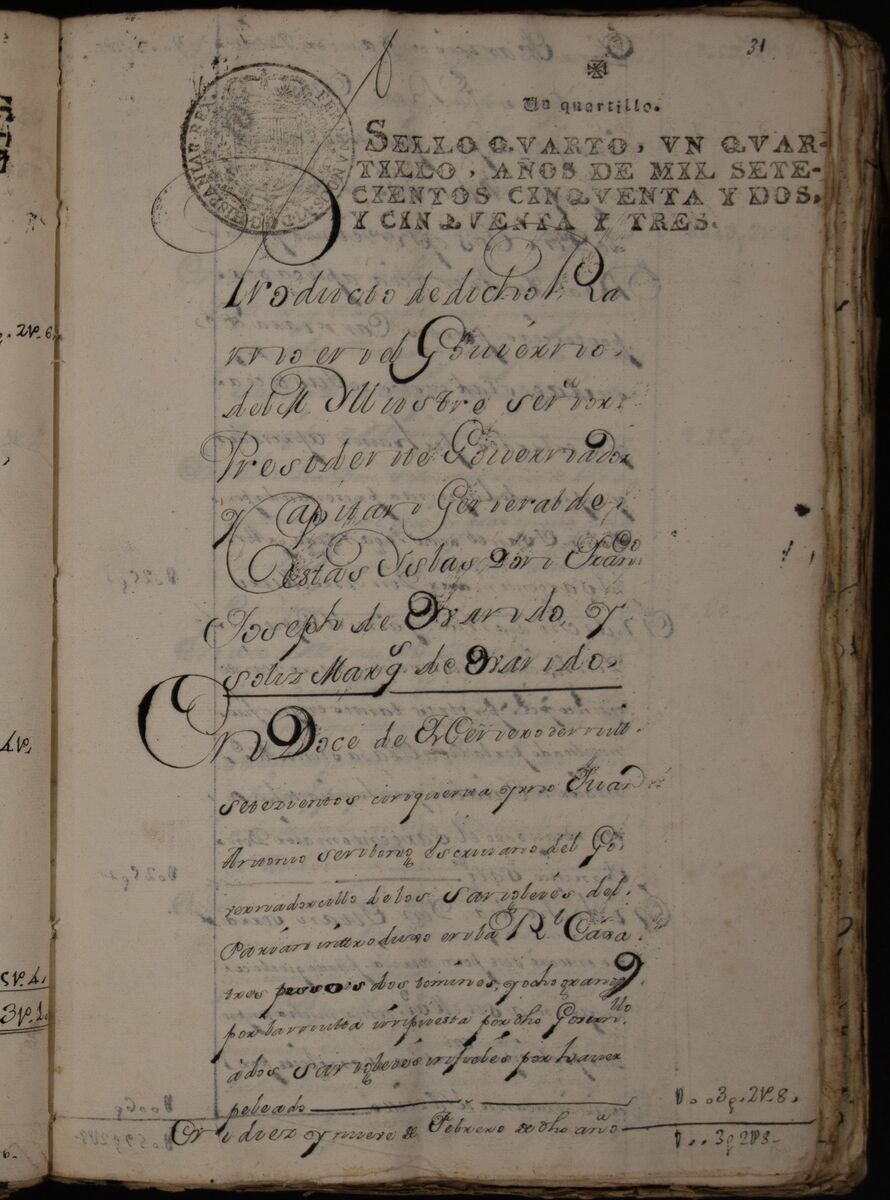 31
Un quartillo.
SELLO QVARTO, VN QVAR-
TILLO, AÑOS DE MIL SETE-
CIENTOS CINQVENTA Y DOS,
Y CINQVENTA Y TRES.
Producto de dicho Ra
mo en el Gouierno
del M. Yllustre señor
Presidente Gouernador
y Capitan General de
estas Yslas Don Franco
Joseph de Ovando y
Soliz Marqs de Ovando
En Doce de Henero de mill
setezientos cinquenta y uno Juan
Antonio Escriuano del Go
vernadorcillo de los Sangleyes del
Parian introduxo en la Rl Caxa
tres pesos dos tomines, y ocho granos
por la multa impuesta por dho Gouernllo
ados Sangleyes infieles por hauer
peleado
D..3p.2v.8.
En diez y nueve de Febrero de dho año
D..3p2v8.